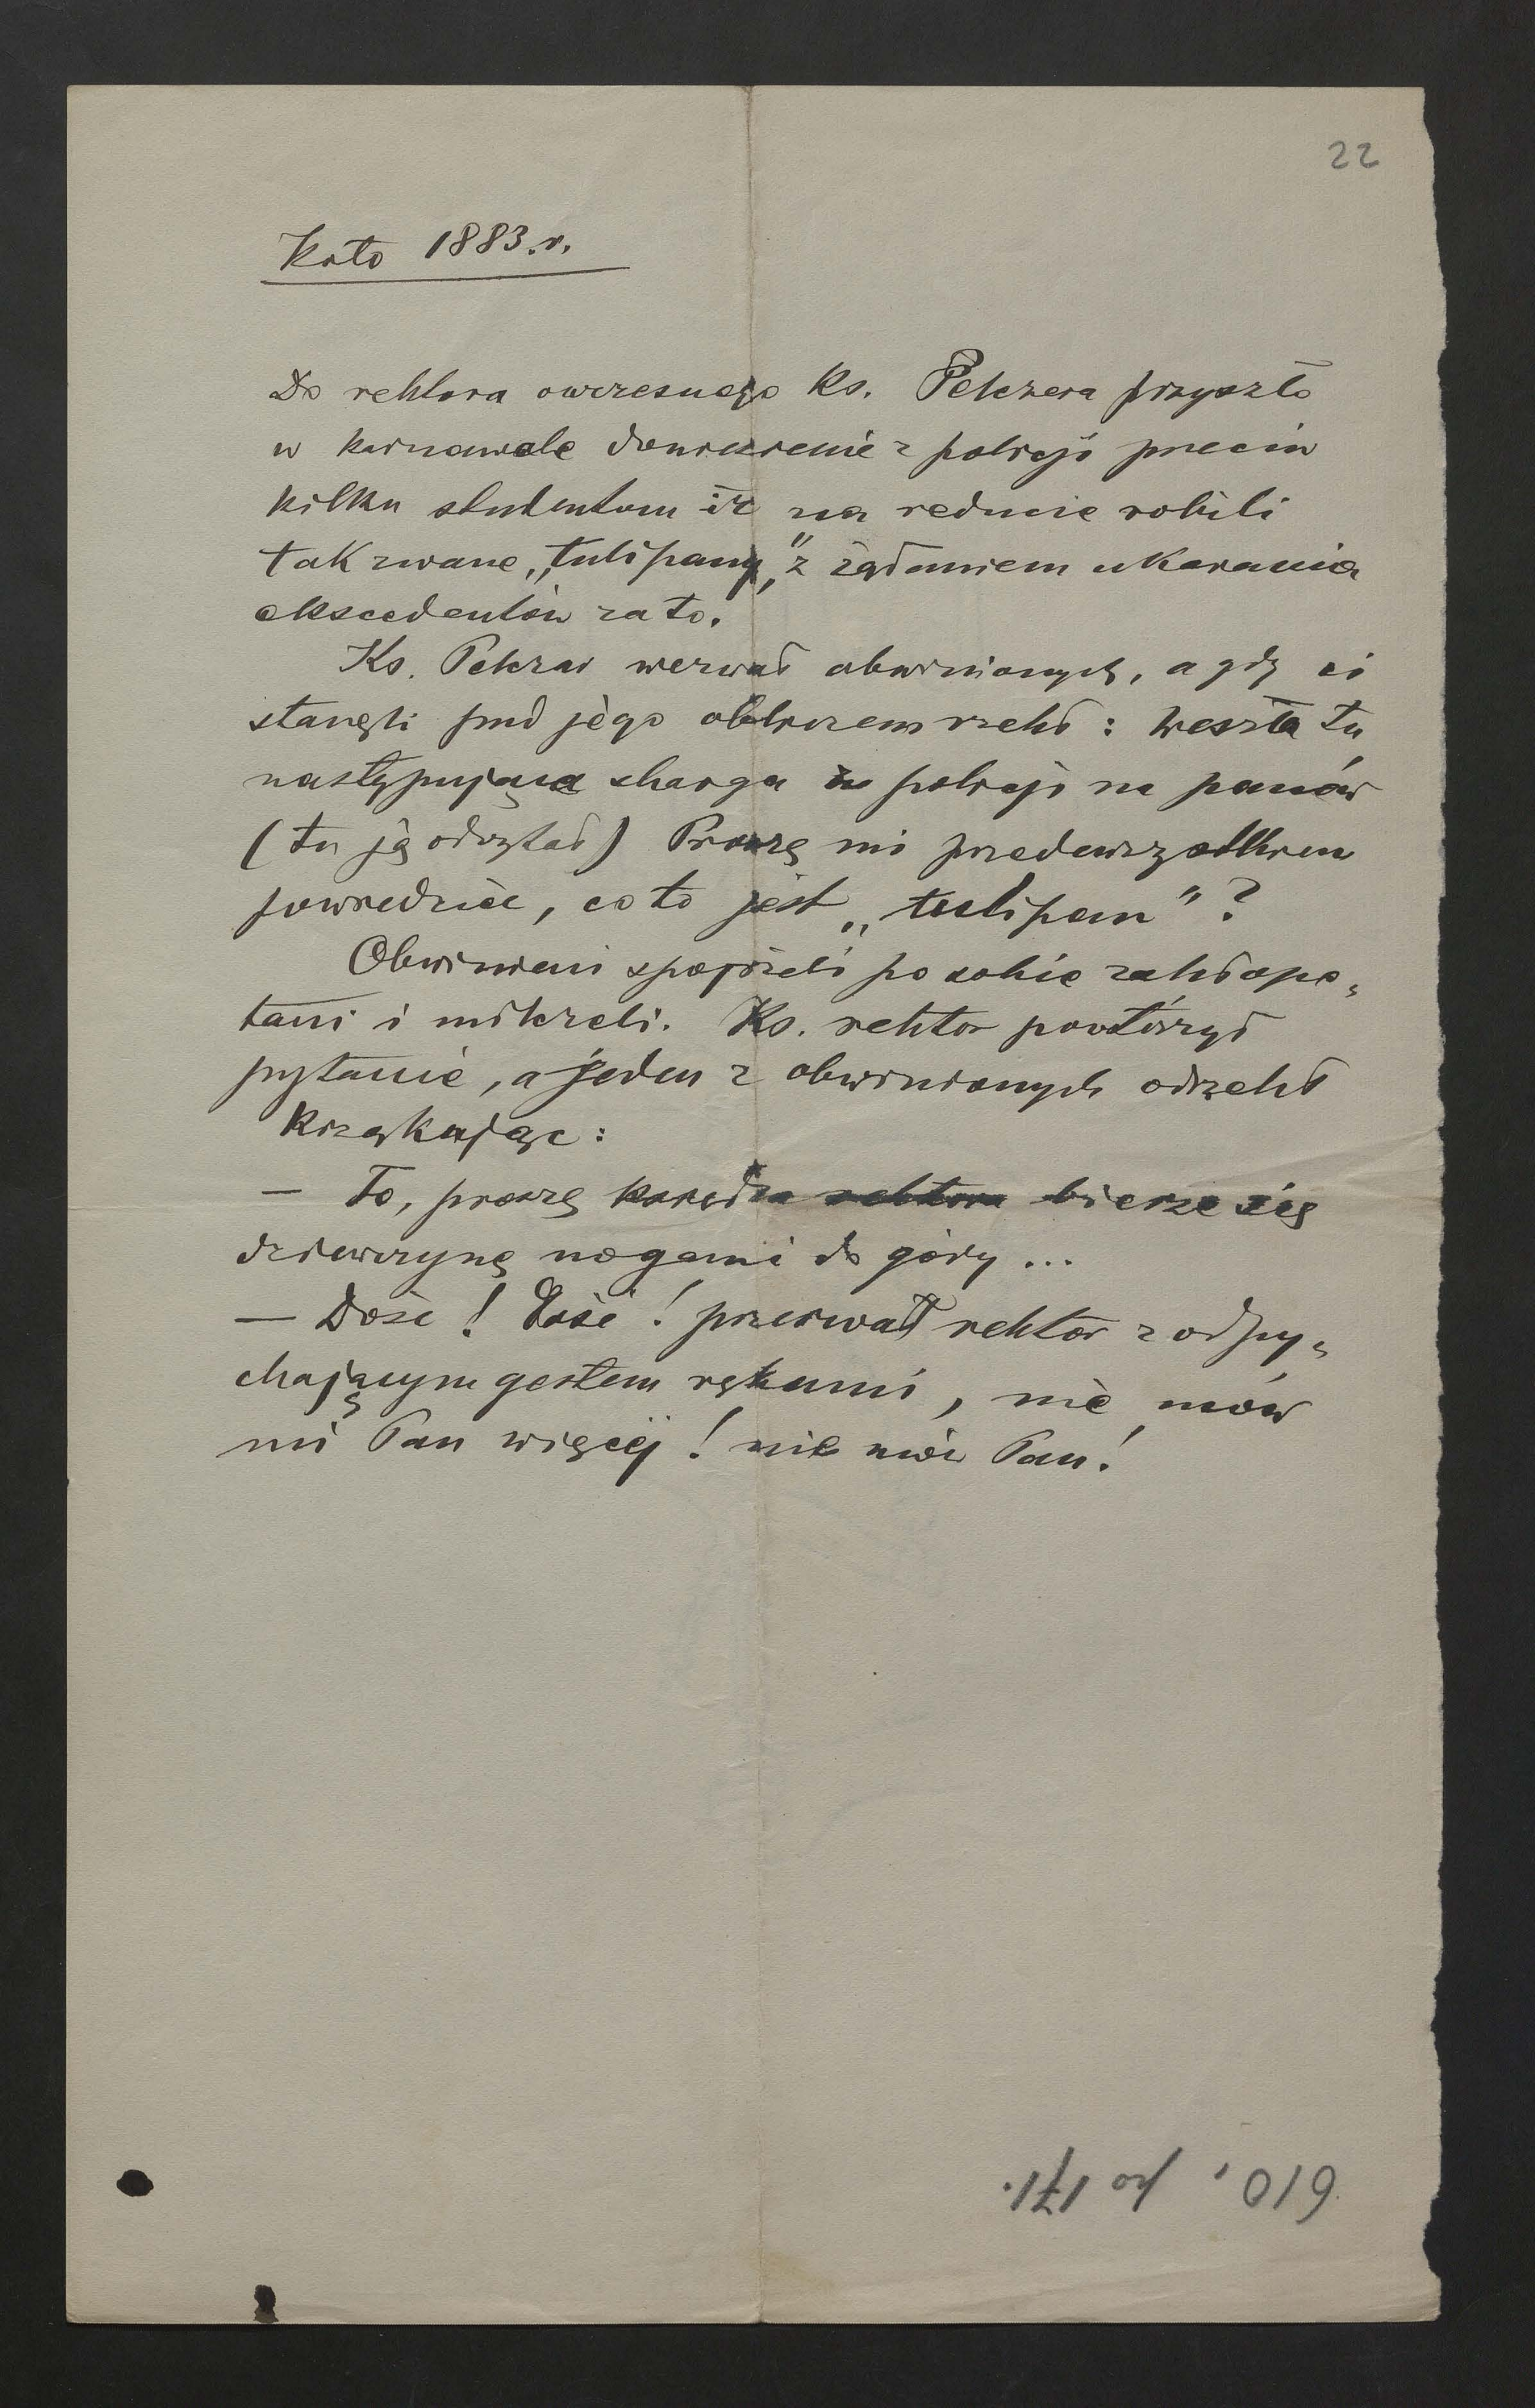 22
Koło 1883.r.
Do rektora owczesnego Ks. Pelczera przyszło
w karnawale doniesienie z policji przeciw
kilku studentom iż na reducie robili
tak zwane „tulipany” z żądaniem ukarania
ekscedentów za to.
Ks. Pelczar wezwał obwinionych, a gdy ci
stanęli pred jego obliczem rzekł : Weszła tu
następująca skarga z policji na panów
(tu ją odczytał) Proszę mi przedewszystkiem
powiedzieć, co to jest „tulipan” ?
Obwinieni spojrzeli po sobie zakłopo„
tani i milczeli. Ks. rektor powtórzył
pytanie, a jeden z obwinionych odrzekł
krząkając :
— To, proszę księdza rektora bierze się
dziewczynę nogami do góry ...
— Dość ! Dość ! przerwał rektor z odpy„
chającym gestem rękami, nie mów
mi Pan więcej ! nie mów Pan !
610, po 171.